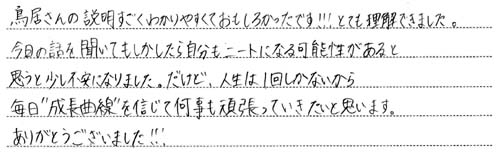 鳥居さんの説明すごくわかりやすくておもしろかったです!!! とても理解できました。
今日の話を聞いてもしかしたら自分もニートになる可能性があると
思うと少し不安になりました。だけど、人生は1回しかないから
毎日"成長曲線"を信じて何事も頑張っていきたいと思います。
ありがとうございました!!!